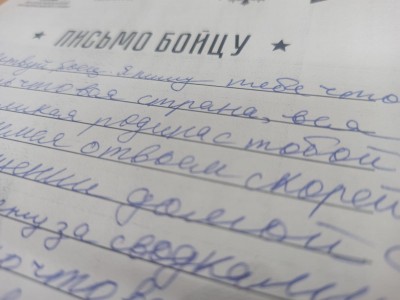 ПИСЬМО БОЙЦУ
боец. Я пишу тебе что
твоя страна, вся
ликая родина с тобой
о твоем скорей
домой
за сводками
что